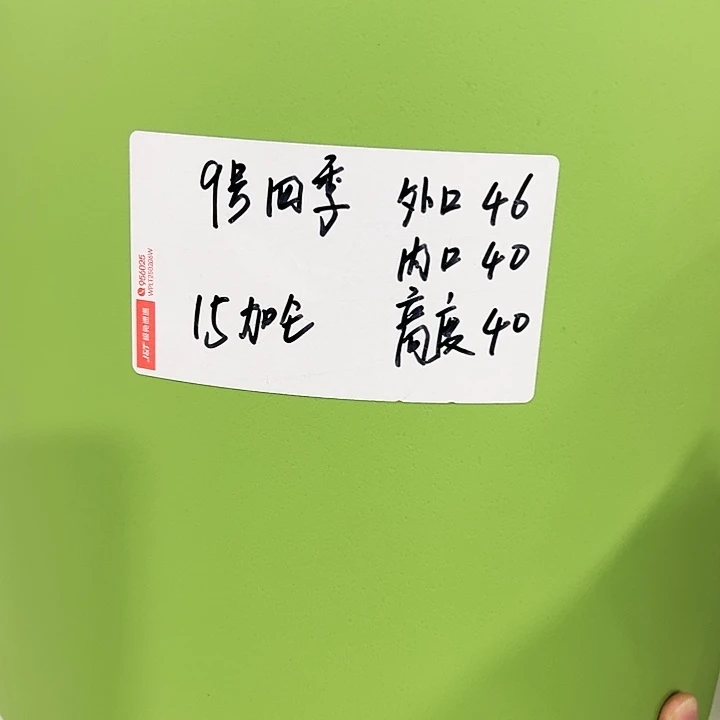 9号四季 外口 46
内口 40
15加仑 高度 40
956025
J&T 极兔速递